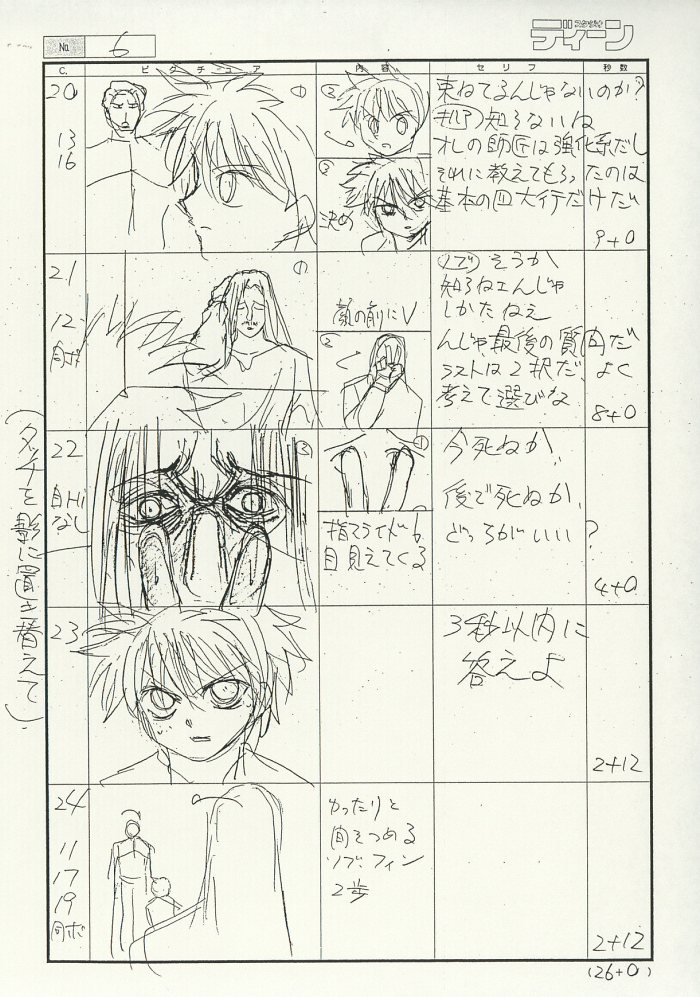 No. 6
スタジオ
ディーン
C. ピクチュア 内容 セリフ 秒数
20
13
16
①
②
③
決め
束ねてるんじゃないのか?
キルア)知らないね
オレの師匠は強化系だし
それに教えてもらったのは
基本の四大行だけだ
9+0
21
12
同ポ
①
顔の前にV
②
ノブ)そうか
知らねェんじゃ
しかたねえ
んじゃ最後の質問だ
ラストは2択だ、よく
考えて選びな
8+0
22
自Hi
なし
③
①
指でライド 6
目見えてくる
今死ぬか、
後で死ぬか、
どっちがいい?
4+0
(タッチを影に置き替えて)
23
3秒以内に
答えよ
2+12
24
11
17
19
同ポ
ゆったりと
間をつめる
ノブ・フィン
2歩
2+12
(26+0)